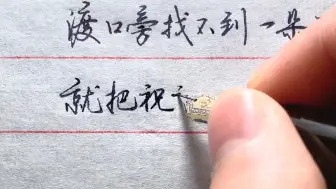 渡口旁找不到一朵
就把祝